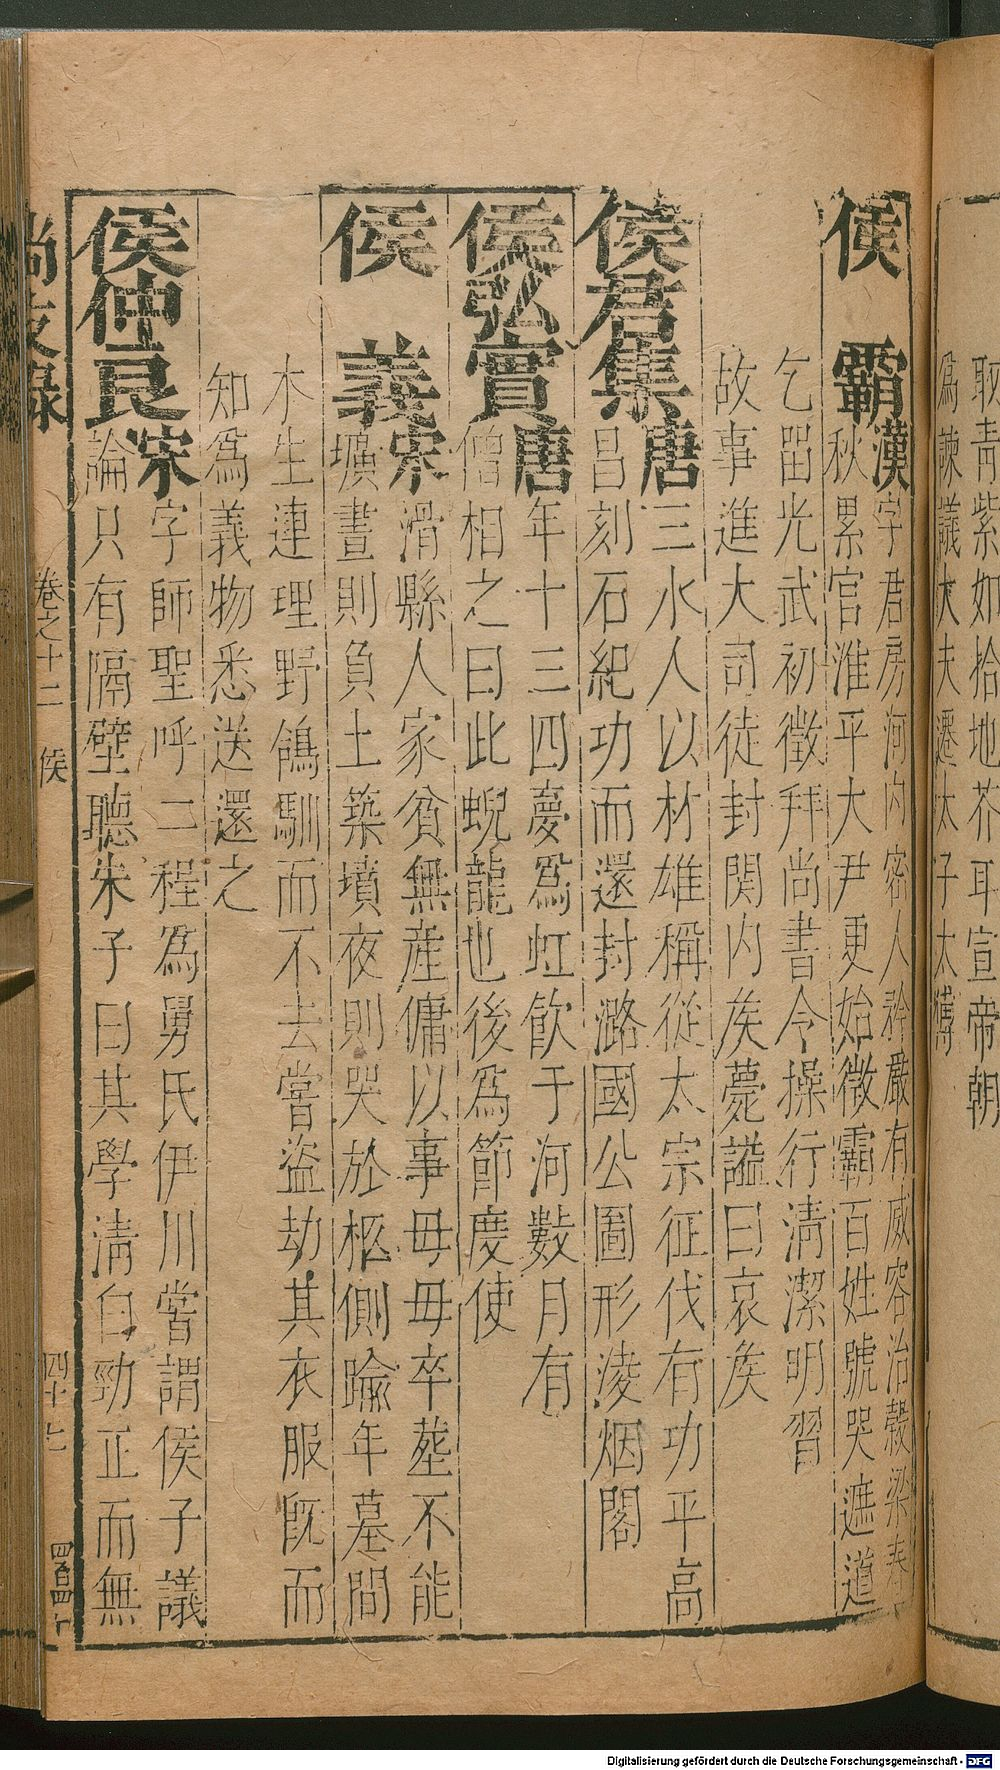 取青紫如拾地芥耳宣帝朝
爲諫議大夫遷太子太傅
侯霸漢字君房河内密人矜嚴有威容治穀梁春
秋累官淮平大尹更始徵霸百姓號哭遮道
乞畱光武初徵拜尚書令操行淸潔明習
故事進大司徒封関内矦薨謚曰哀矦
侯君集唐三水人以材雄稱從太宗征伐有功平高
昌刻石紀功而還封潞國公圖形淩烟閣
侯弘實唐年十三四夢爲虹飮于河數月有
僧相之曰此蜺龍也後爲節度使
侯義宋滑縣人家貧無産傭以事毋毋卒塟不能
壙晝則負土築墳夜則哭於柩側踰年墓間
木生連理野鴿馴而不去嘗盜劫其衣服旣而
知爲義物悉送還之
侯仲良宋字師聖呼二程爲舅氏伊川嘗謂侯子議
論只有隔壁聽朱子曰其學淸白勁正而無
尚友錄 卷之十二 侯 四十七
Digitalisierung gefördert durch die Deutsche Forschungsgemeinschaft - DFG